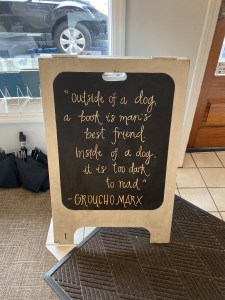 "Outside of a dog,
a book is man's
best friend.
Inside of a dog,
it is too dark
to read."
- GROUCHO MARX